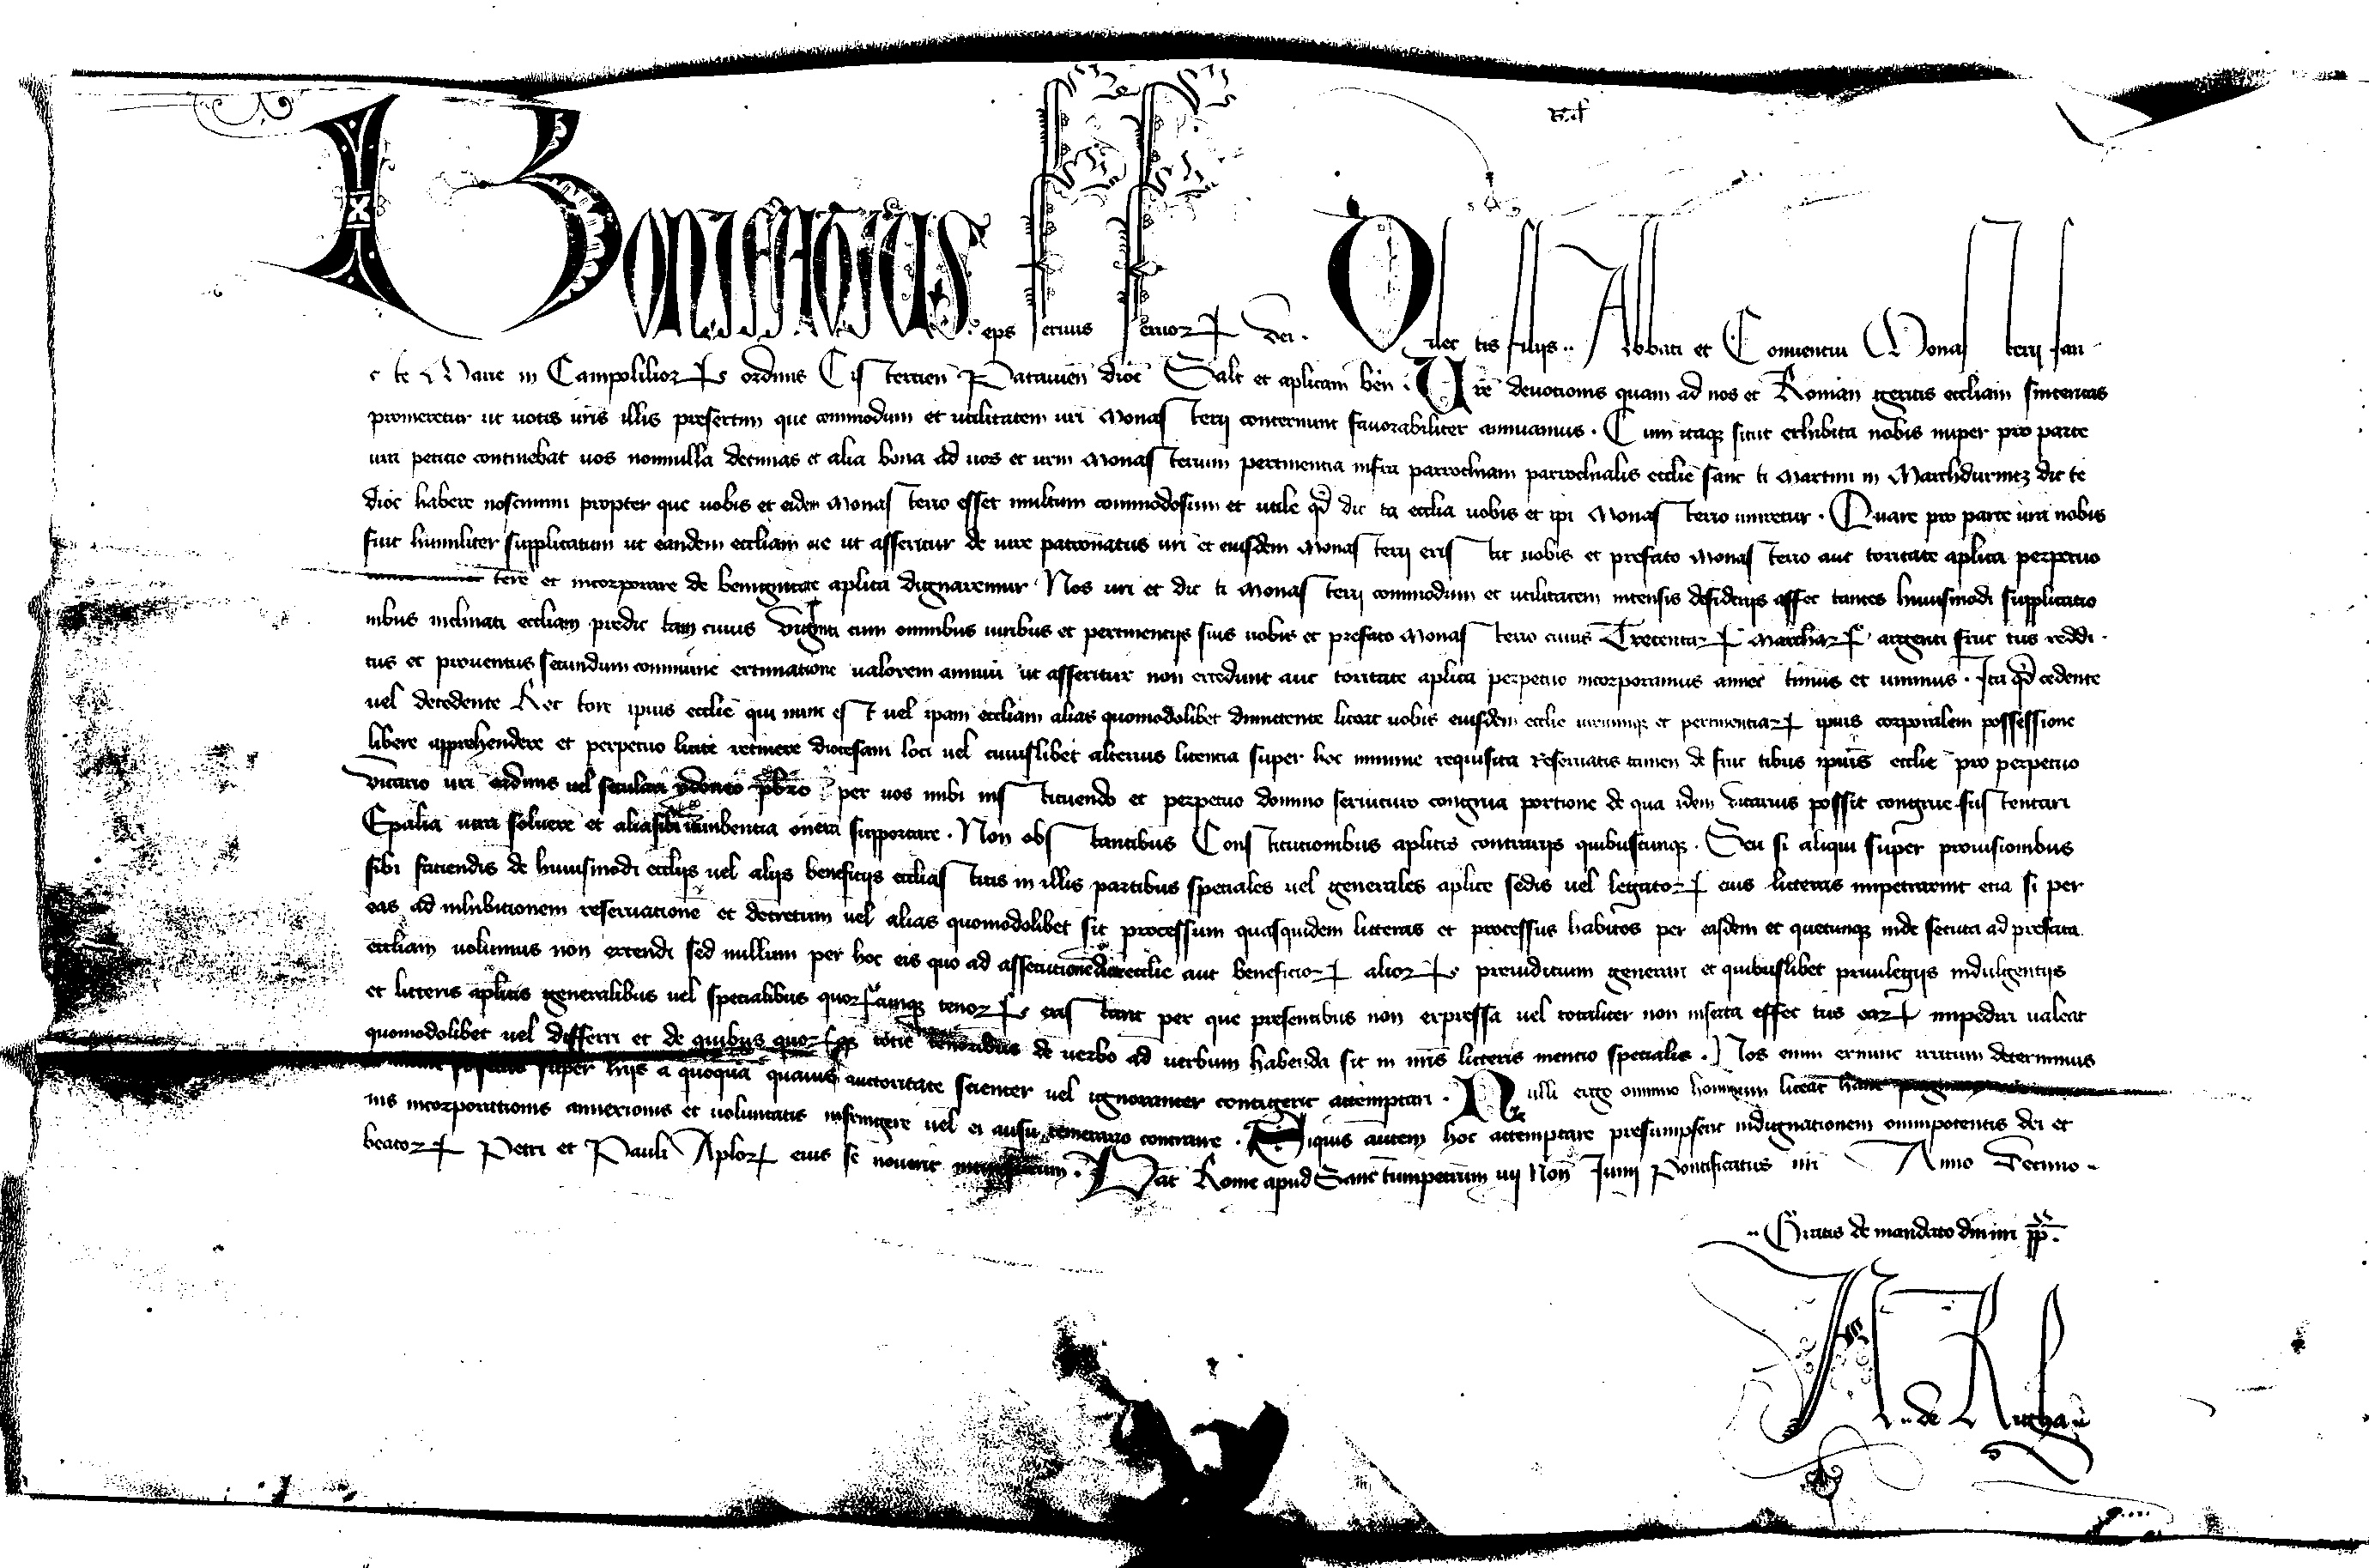 Bonifatius eps seruus seruorꝝ dei. Dilectis filijs .. Abbati et Conuentui Monasterij san
cte Marie in Campoliliorꝝ ordinis Cistercien Patauien dioc Salt et aplicam ben. Vre deuotionis quam ad nos et Roman geritis eccliam sinceritas
promeretur ut uotis uris illis presertim que commodum et utilitatem uri Monasterij concernunt fauorabiliter annuamus. Cum itaqꝫ sicut exhibita nobis nuper pro parte
ura peticio continebat uos nonnulla decimas et alia bona ad uos et urm Monasterium pertinentia infra parrochiam parrochialis ecclie sancti Martini in dicte
dioc habere noscimini propter que uobis et eidem Monasterio esset multum commodosum et utile qd dicta ecclia uobis et ipi Monasterio uniretur. Quare pro parte ura nobis
fuit humiliter supplicatum ut eandem eccliam que ut asseritur de iure patronatus uri et eiusdem Monasterij existit uobis et prefato Monasterio auctoritate aplica perpetuo
et incorporare de benignitate aplica dignaremur. Nos uri et dicti Monasterij commodum et utilitatem intensis desiderijs affectantes huiusmodi supplicatio
nibus inclinati eccliam predictam cuius Viginti cum omnibus iuribus et pertinentijs suis uobis et prefato Monasterio cuius Trecentarꝝ Marcharꝝ argenti fructus reddi
tus et prouentus secundum commune extimatione ualorem annuu ut asseritur non excedunt auctoritate aplica perpetuo incorporamus annectimus et unimus. Ita qd cedente
uel decedente Rectore ipius ecclie qui nunc est uel ipam eccliam alias quomodolibet dimittente liceat uobis eiusdem ecclie iuriumqꝫ et pertinentiarꝝ ipius corporalem possessione
libere apprehendere et perpetuo licite retinere diocesani loci uel cuiuslibet alterius licentia super hoc minime requisita Reseruatis tamen de fructibus ipius ecclie pro perpetuo
Vicario uri ordinis uel seculari ydoneo pbro per uos inibi instituendo et perpetuo domino seruituro congrua portione de qua idem vicarius possit congrue sustentari
Epalia iura soluere et alia sibi incumbentia onera supportare. Non obstantibus Constitutionibus aplicis contrarijs quibuscunqꝫ. Seu si aliqui super prouisionibus
sibi faciendis de huiusmodi ecclijs uel alijs beneficijs eccliasticis in illis partibus speciales uel generales aplice sedis uel legatorꝝ eius litteras impetrarint etia si per
eas ad inhibitionem reseruatione et decretum uel alias quomodolibet sit processum quasquidem litteras et processus habitos per easdem et quecunqꝫ inde secuta ad prefata
eccliam uolumus non extendi sed nullum per hoc eis quo ad assecutione ecclie aut beneficiorꝝ aliorꝝ preiudicium generari et quibuslibet priuilegijs indulgentijs
et litteris aplicis generalibus uel specialibus quorꝝcunqꝫ tenorꝝ existant per que presentibus non expressa uel totaliter non inserta effectus earꝝ impediri ualeat
quomodolibet uel differri et de quibus quorꝝqꝫ totis tenoribus de uerbo ad uerbum habenda sit in nris litteris mentio specialis. Nos enim exnunc irritum decernimus
super hijs a quoqua quauis auctoritate scienter uel ignoranter contigerit attemptari. Nulli ergo omnino hominum liceat hanc
nis incorporationis annexionis et uoluntatis infringere uel ei ausu temerario contraire. Siquis autem hoc attemptare presumpserit indignationem omnipotentis dei et
beatorꝝ Petri et Pauli Aplorꝝ eius se nouerit incursurum. Dat Rome apud Sanctumpetrum iij Non Junij Pontificatus nri Anno Decimo.
.. Gratis de mandato dni nri pp.